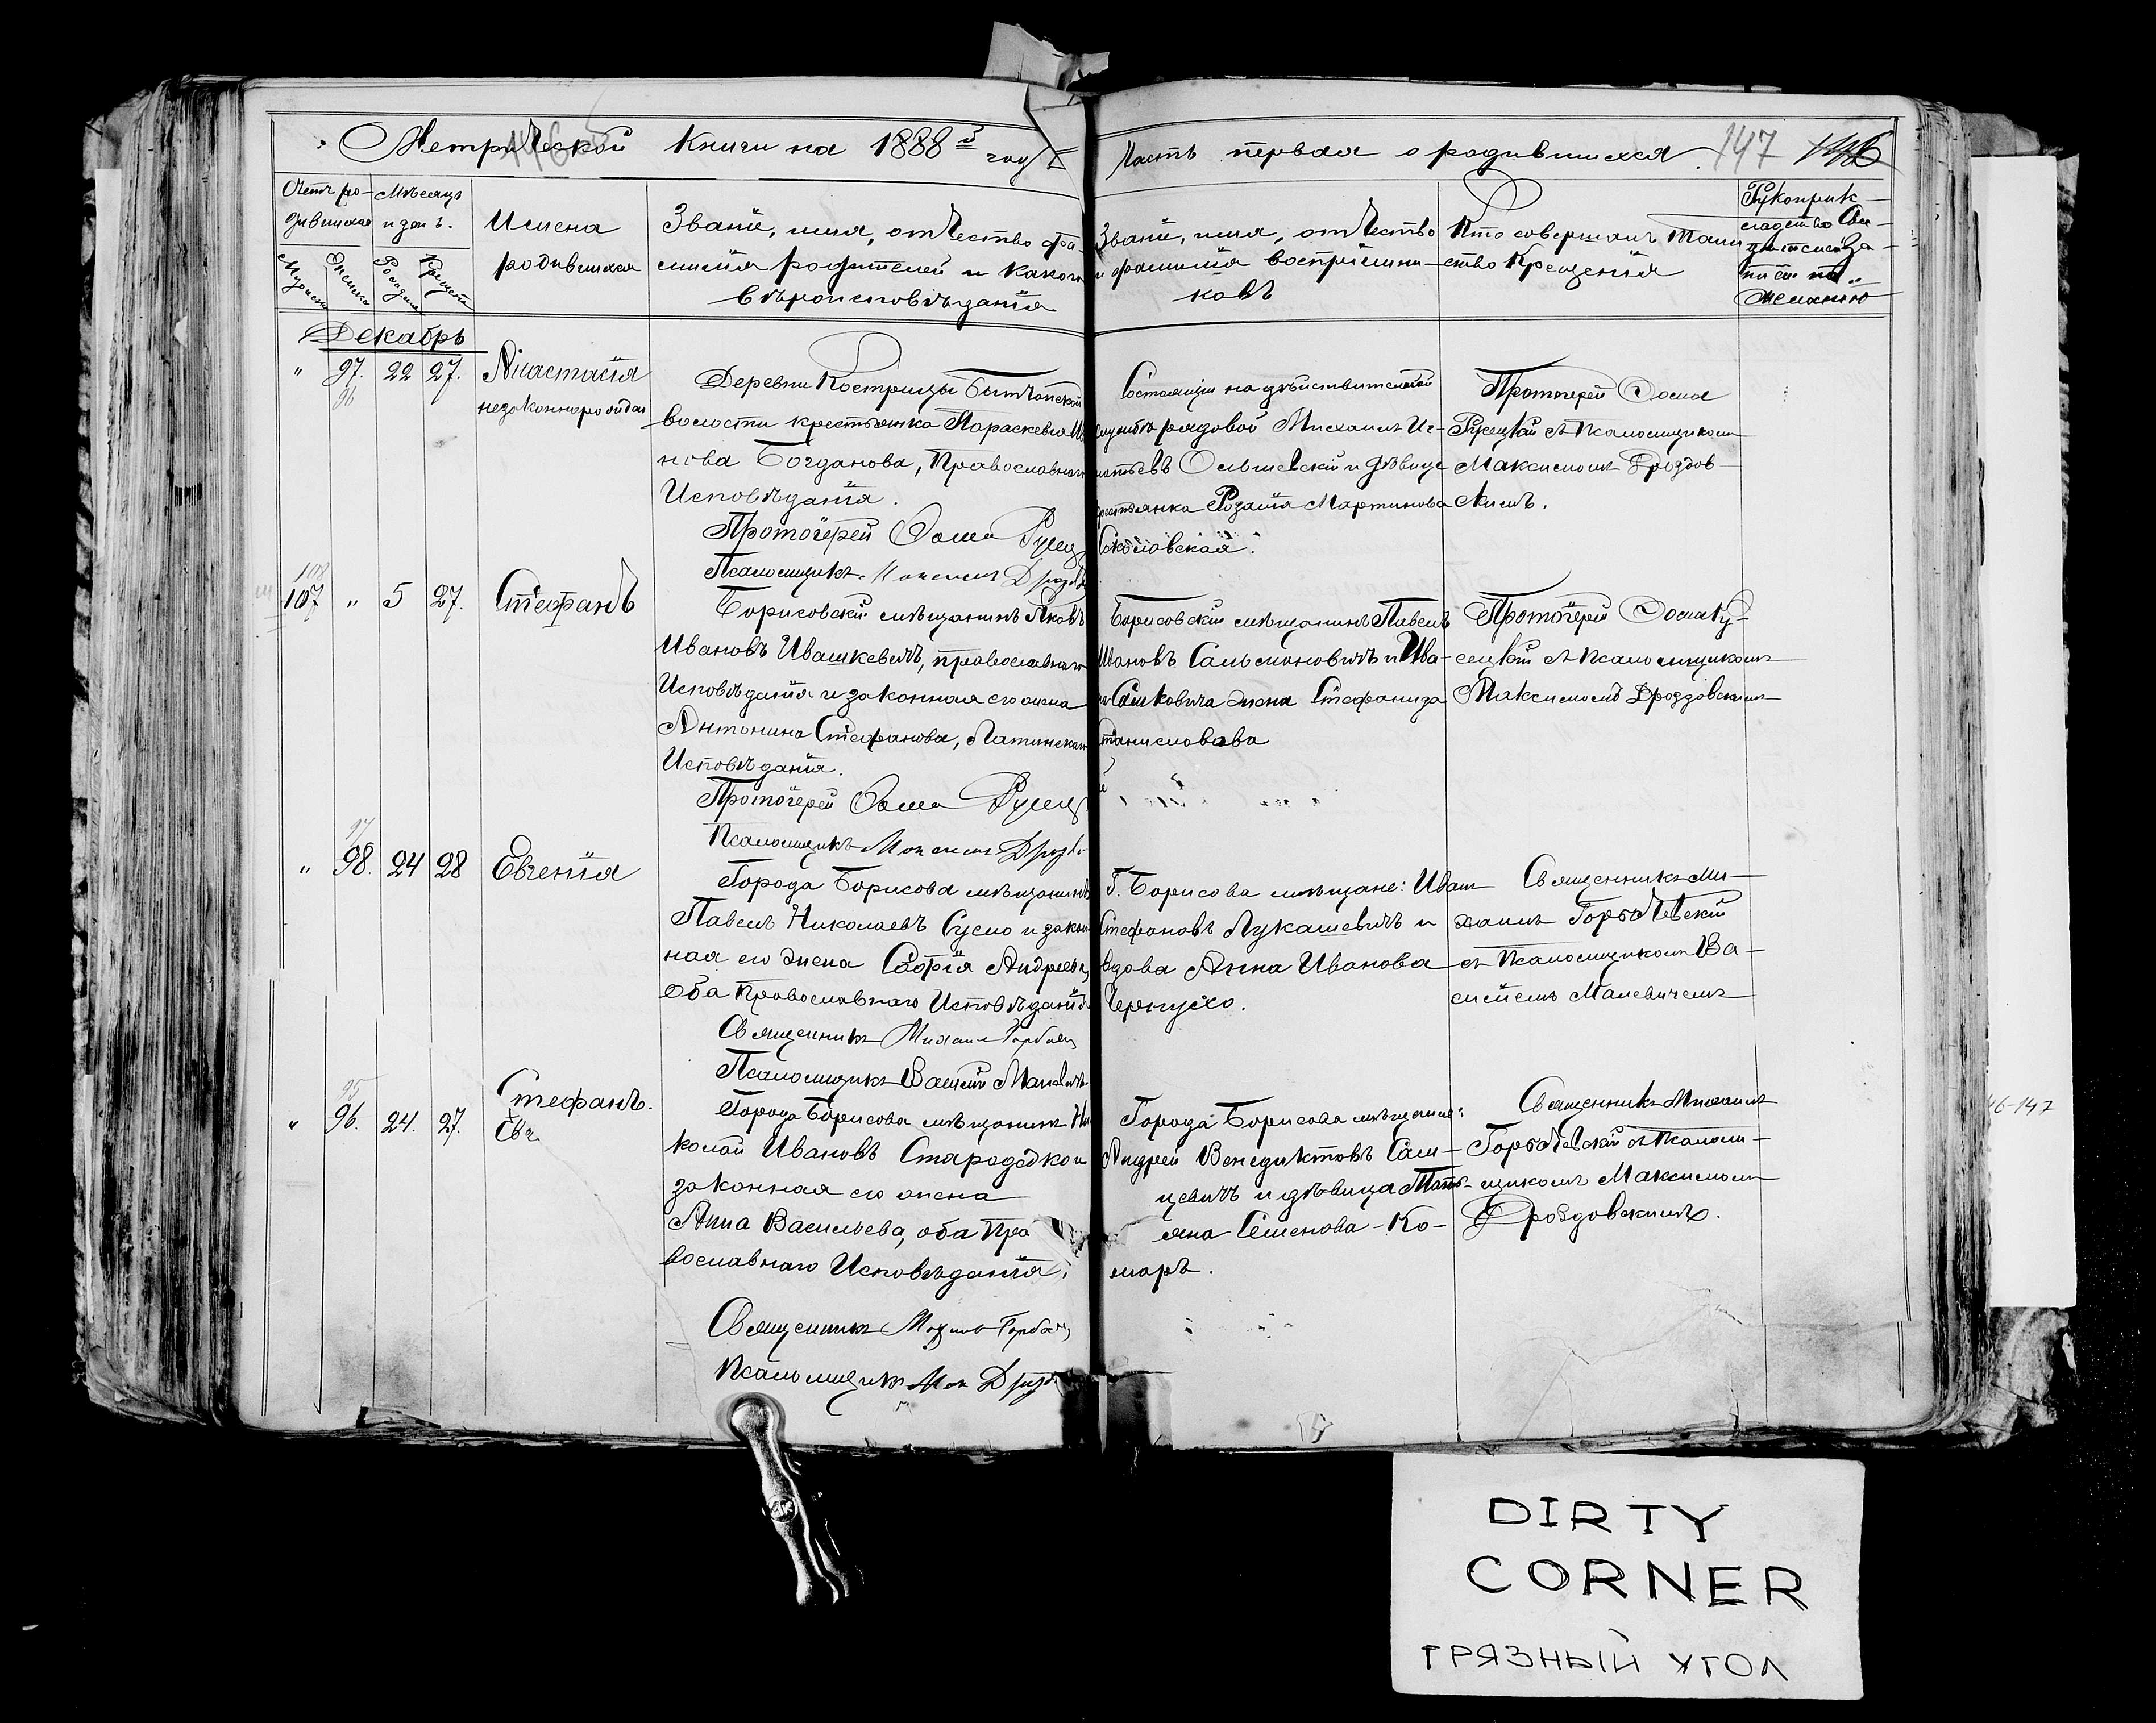 Метрической книги на 1888й год
Часть первая о родившихся. 147 146
Счетъ ро-
дившихся
Мѣсяцъ
и день.
Имена
родившихся
Званіе, имя, отчество фа-
милія родителей и какого
вѣроисповѣданія
Званіе, имя, отчество
и фамилія воспріемни-
ковъ
Кто совершалъ таин
ство Крещенія
Рукоприк-
ладство сви-
желанію
Декабрь
" 97. 22 27. Анастасія
96
незаконнорожден
Деревни Кострицы Бытчанской
волости крестьянка Параскевія
нова Богданова, Православнаго
Исповѣданія.
Протоіерей Ѳома Русец
Псаломщикъ Максим Дрозд
Состоящій на дѣйствительной
службѣ рядовой Михаилъ Иг-
натьевъ Ольшевскій и дѣвица
крестьянка Розалія Мартинова
Соколовская.
Протоіерей Ѳома
Русецкій съ Псаломщикомъ
Максимомъ Дроздов-
скимъ.
108
107 " 5 27. Стефанъ
Борисовскій мѣщанинъ Яковъ
Ивановъ Ивашкевичъ, православнаго
Исповѣданія и законная его жена
Антонина Стефанова, Латинскаго
Исповѣданія.
Протоіерей Ѳома Русец
Псаломщикъ Максим Дрозд
Борисовскій мѣщанинъ Павелъ
Ивановъ и Ива-
жена Стефанида
Станиславова
Протоіерей Ѳома Ру-
сецкій съ Псаломщикомъ
Максимомъ Дроздовскимъ
97
" 98. 24 28 Евгенія
Города Борисова мѣщанинъ
Павелъ Николаевъ Сусло и закон
ная его жена Софія Андреева,
оба Православнаго Исповѣданія
Священникъ Михаил Горбац
Псаломщикъ Василій Малевичъ
Г. Борисова мѣщане: Иванъ
Стефановъ Лукашевичъ и
вдова Анна Иванова
Чернухо.
Священникъ Ми-
хаилъ
съ Псаломщикомъ Ва-
силіемъ Малевичемъ
95
" 96. 24. 27. Стефанъ.
Евг
Города Борисова мѣщанинъ Ни
колай Ивановъ Стародѣдко и
законная его жена
Анна Васильева, оба Пра
вославнаго Исповѣданія.
Священникъ Михаил Горбац
Псаломщикъ Мак Дрозд
Города Борисова мѣщане:
Андрей Венедиктовъ Сам-
цевичъ и дѣвица Тать-
яна Семенова Ко-
маръ.
Священникъ Михаилъ
съ Псалом-
щикомъ Максимомъ
Дроздовскимъ.
46-147
DIRTY
CORNER
ГРЯЗНЫЙ УГОЛ